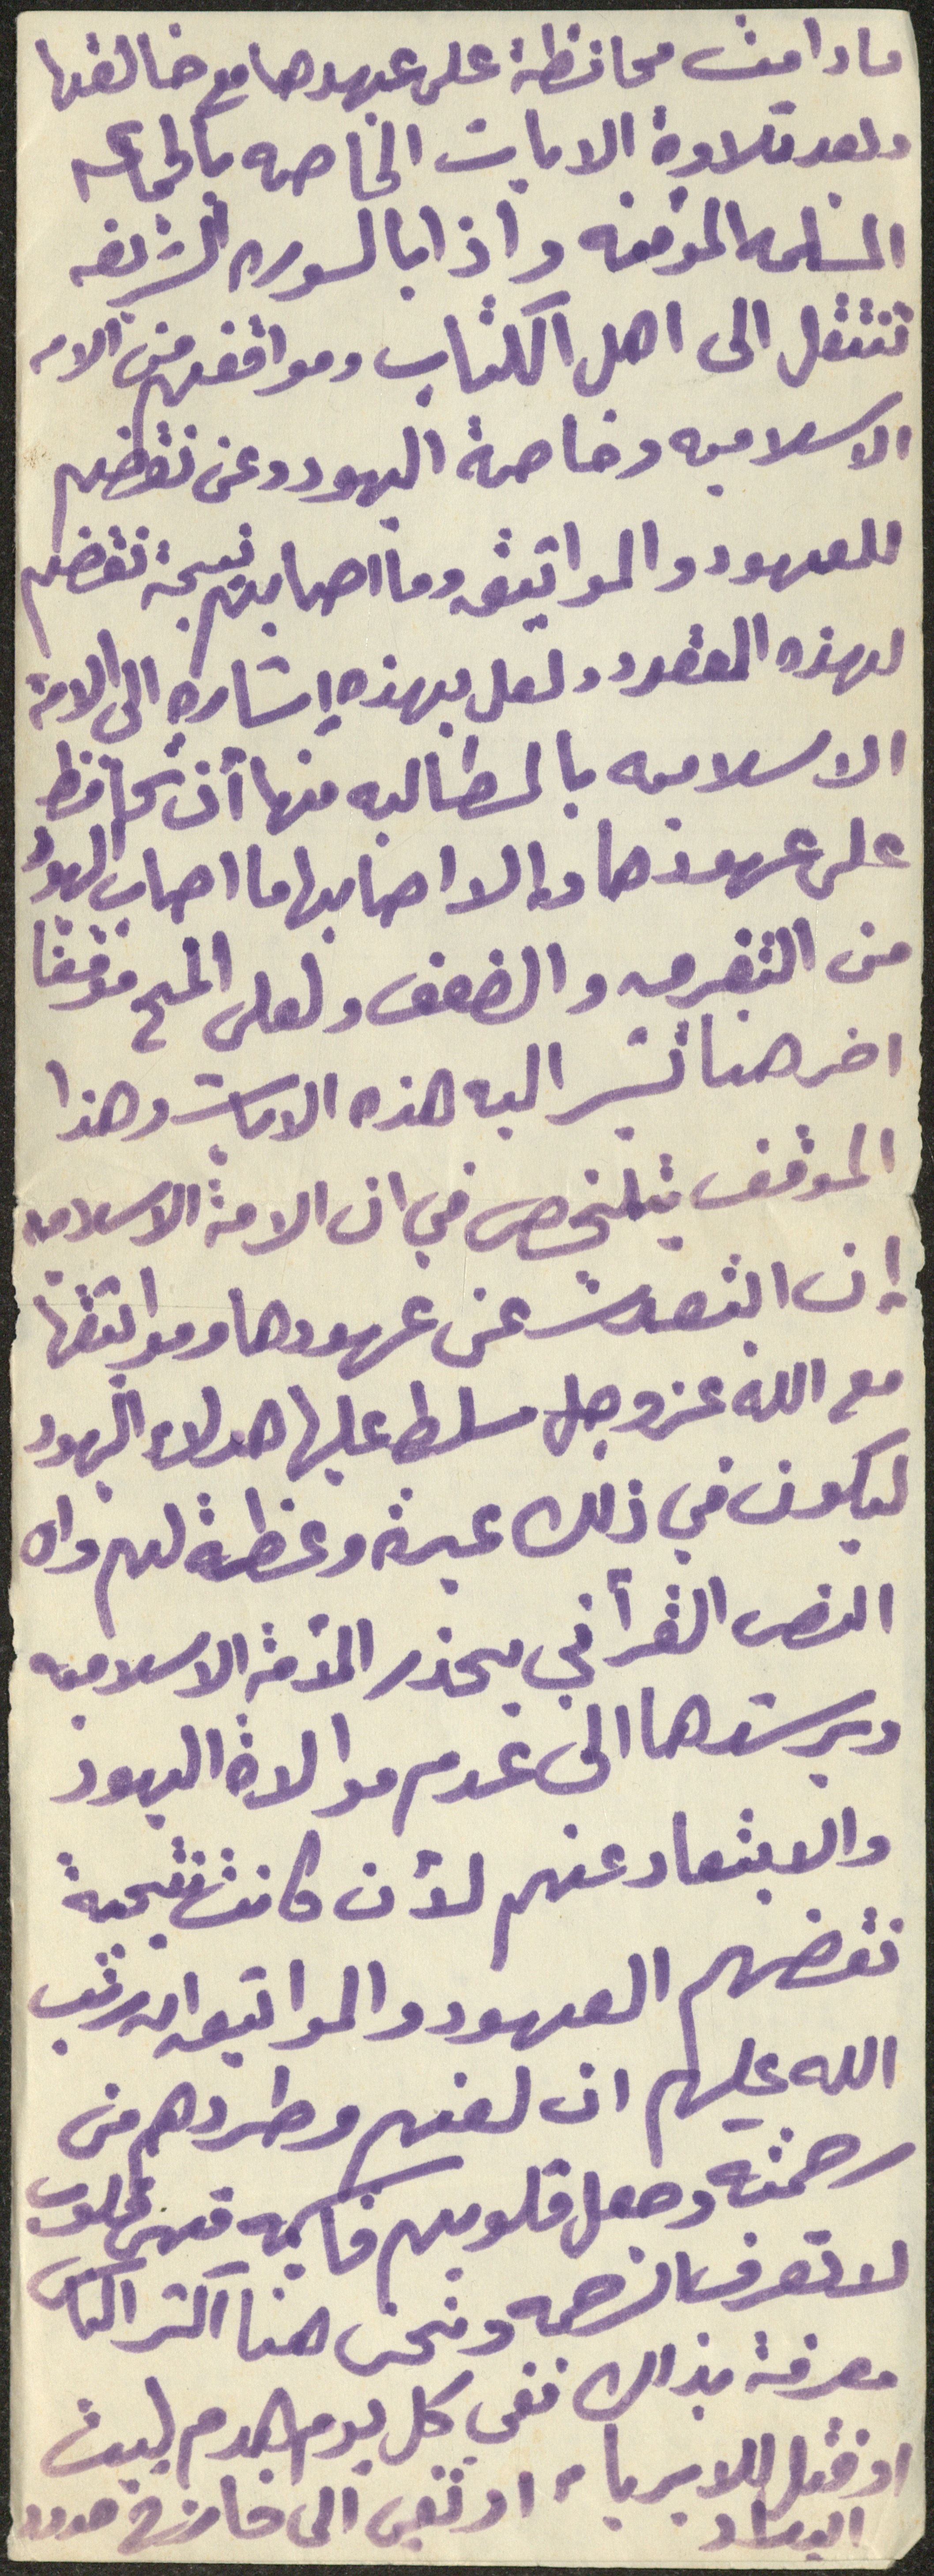 ما دامت محافظة على عهدها مع خالقها
وبعد تلاوة الايات الخاصه بالجماعه
المسلمه المؤمنه واذا بالسوره الشريفه
تنتقل الى اهل الكتاب ومواقفهم من الامه
الاسلاميه وخاصة اليهود وعن نقضهم
للعهود والمواثيق وما اصابهم نتيجة نقضهم
لهذه العقود ولعل بهذه إشاره الى الامة
الاسلاميه بالمطالبه منها أن تحافظ
على عهودها والا اصابها ما اصاب اليهود
من التفرق والضعف ولعلى المح موقفا
اخر هنا تشير اليه هذه الايات وهذا
الموقف يتلخص في ان الامة الاسلاميه
إن ابتعدت عن عهودها ومواثقها
مع الله عزوجل سلط عليها هؤلاء اليهود
ليكون في ذلك عبرة وعظة لهم وان
النص القرأني يحذر الأمة الاسلاميه
ويرشدها الى عدم موالاة اليهود
والابتعاد عنهم لأن كانت نتيجة
نقضهم العهود والمواثيق ان رتب
الله عليهم ان لعنهم وطردهم من
رحمته وجعل قلوبهم قاسيه فهى قلوب
لا تعرف الرحمه ونحن هنا اكثر الناس
معرفة بذاك ففى كل يوم هدم لبيت
او قتل للابرياء او نفى الى خارج حدود
البلاد